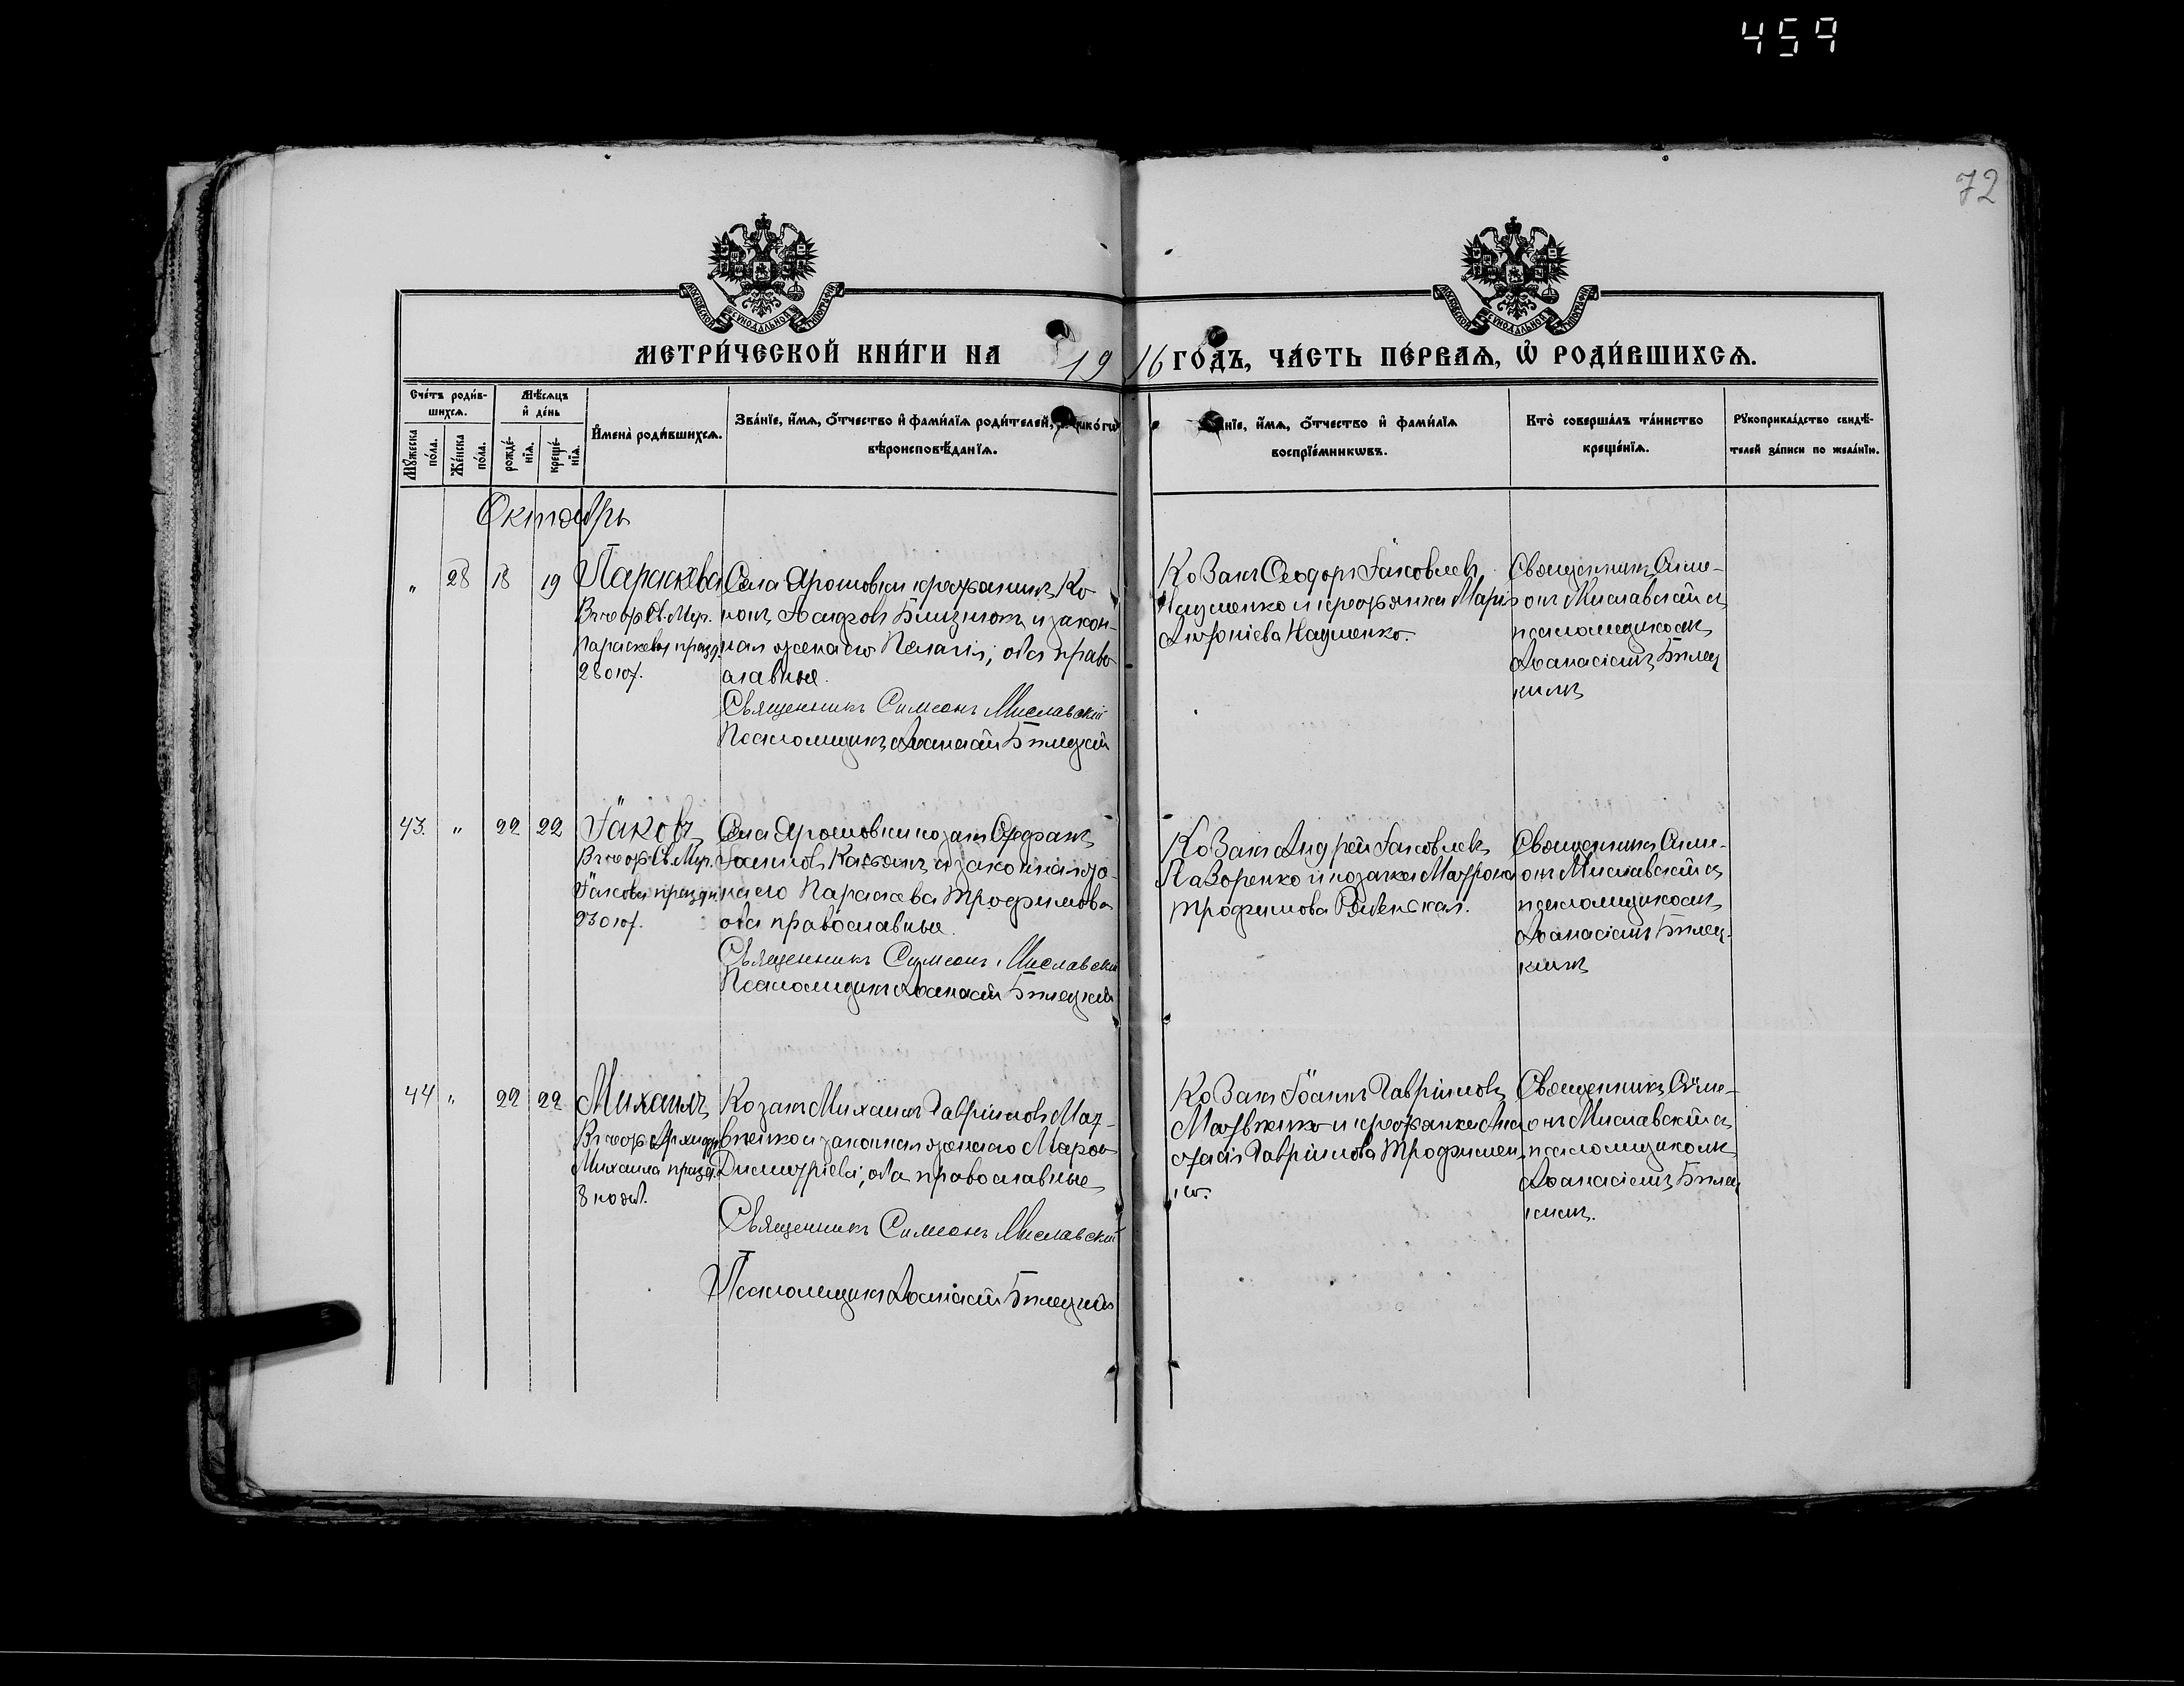 459
72
МОСКОВСКОЙ СѴНОДАЛЬНОЙ ТИПОГРАФІИ
МОСКОВСКОЙ СѴНОДАЛЬНОЙ ТИПОГРАФІИ
МЕТРИ́ЧЕСКОЙ КНИ́ГИ НА 1916 ГО́ДЪ, ЧА́СТЬ ПЕ́РВАѦ, Ѡ҆ РОДИ́ВШИХСѦ.
Сче́тъ роди́в-
шихсѧ.
Мѣ́сѧцъ
и҆ де́нь
Мꙋ́жеска
по́ла.
Же́нска
по́ла.
рожде́-
нїѧ.
креще́-
нїѧ.
И҆мена̀ роди́вшихсѧ.
Зва́нїе, и҆́мѧ, ѻ҆́тчество и҆ фами́лїѧ роди́телей,
вѣроисповѣ́данїѧ.
и҆́мѧ, ѻ҆́тчество и҆ фами́лїѧ
воспрїе́мникѡвъ.
Кто̀ соверша́лъ та́инство
креще́нїѧ.
Рꙋкоприкла́дство свидѣ́-
телей за́писи по жела́нїю.
Октябрь
" 28 18 19
Параскева
Въ честь Св. Муч.
Параскевы празд.
28 окт.
Села Ярошовки крестьянинъ Ко-
нонъ Близнюкъ и закон-
ная жена его Пелагія; оба право-
славные.
Священникъ Симеонъ Миславскій
Псаломщикъ Аѳанасій Бѣлецкій
Козакъ Ѳеодоръ Іаковлевъ
Науменко и крестьянка Марія
Науменко.
Священникъ Симе-
онъ Миславскій съ
псаломщикомъ
Аѳанасіемъ Бѣлец-
кимъ
43. " 22 22
Іаковъ
Въ честь Св. Муч.
Іакова праздн.
23 окт.
Села Ярошовки козакъ Стефанъ
Касьянъ и законная же-
на его Параскева Трофимова
оба православные.
Священникъ Симеонъ Миславскій
Псаломщикъ Аѳанасій Бѣлецкій
Козакъ Андрей Іаковлевъ
Назоренко и козачка Матрона
Трофимова
Священникъ Симе-
онъ Миславскій съ
псаломщикомъ
Аѳанасіемъ Бѣлец-
кимъ
44 " 22 22
Михаилъ
Въ честь Архистр.
Михаила празд.
8 нояб.
Козакъ Михаилъ Гавріиловъ Мат-
вѣенко и законная жена его
Димитріева; оба православные
Священникъ Симеонъ Миславскій
Псаломщикъ Аѳанасій Бѣлецкій
Козакъ Іоаннъ Гавріиловъ
Матвѣенко и крестьянка Ана-
стасія Гавріилова Трофимен-
ко.
Священникъ Симе-
онъ Миславскій съ
псаломщикомъ
Аѳанасіемъ Бѣлец-
кимъ.